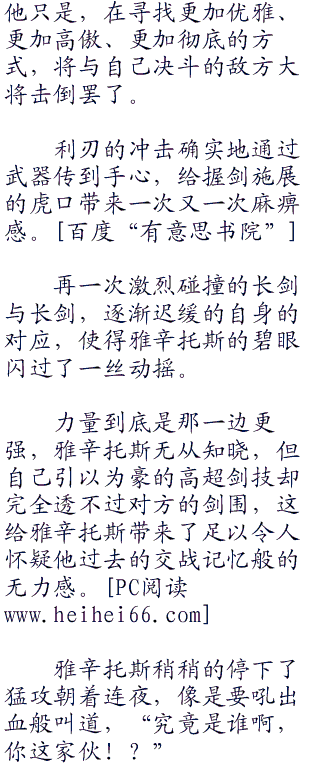 他只是，在寻找更加优雅、
更加高傲、更加彻底的方
式，将与自己决斗的敌方大
将击倒罢了。
利刃的冲击确实地通过
武器传到手心，给握剑施展
的虎口带来一次又一次麻痹
感。[百度“有意思书院”]
再一次激烈碰撞的长剑
与长剑，逐渐迟缓的自身的
对应，使得雅辛托斯的碧眼
闪过了一丝动摇。
力量到底是那一边更
强，雅辛托斯无从知晓，但
自己引以为豪的高超剑技却
完全透不过对方的剑围，这
给雅辛托斯带来了足以令人
怀疑他过去的交战记忆般的
无力感。[PC阅读
www.heihei66.com]
雅辛托斯稍稍的停下了
猛攻朝着连夜，像是要吼出
血般叫道，“究竟是谁啊，
你这家伙！？”